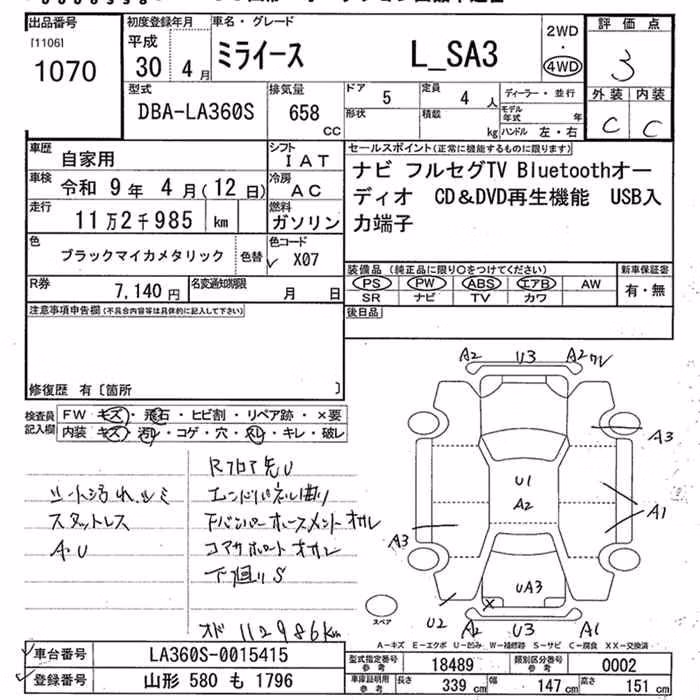 出品番号
[1106]
1070
初度登録年月
平成
30 4月
車名・グレード
ミライース L_SA3
2WD
・
4WD
評価点
3
外装 内装
C C
型式
DBA-LA360S
排気量
658
CC
ドア
5
定員
4 人
形状
積載
kg
ディーラー・並行
モデル年式 年
ハンドル 左・右
車歴
自家用
シフト
IAT
車検
令和 9年 4月(12日)
冷房
AC
走行
11万2千985 km
燃料
ガソリン
色
ブラックマイカメタリック
色替
色コード
X07
R券
7,140円
名変通知期限
月 日
セールスポイント(正常に機能するものに限ります)
ナビ フルセグTV Bluetoothオー
ディオ CD&DVD再生機能 USB入
力端子
装備品(純正品に限り○をつけてください)
PS PW ABS エアB AW
SR ナビ TV カワ
新車保証書
有・無
後日品
注意事項申告欄(不具合内容等は具体的に記入して下さい)
修復歴 有〔箇所 〕
検査員
記入欄
FW キズ・飛石・ヒビ割・リペア跡・×要
内装 キズ・汚れ・コゲ・穴・スレ・キレ・破レ
シート汚れ、シミ
スタットレス
A・U
Rフロア先U
エンドパネル曲り
下回りS
オド 112986km
A2 U3 A2ワレ
A3
U1
A2
A1
A3
UA3
U2 A2 U3 A1
スペア
A-キズ E-エクボ U-凹み W-補修跡 S-サビ C-腐食 XX-交換済
車台番号
LA360S-0015415
登録番号
山形 580 も 1796
型式指定番号
参考
18489
類別区分番号
参考
0002
車庫証明用
参考
長さ
339 cm
幅
147 cm
高さ
151 cm